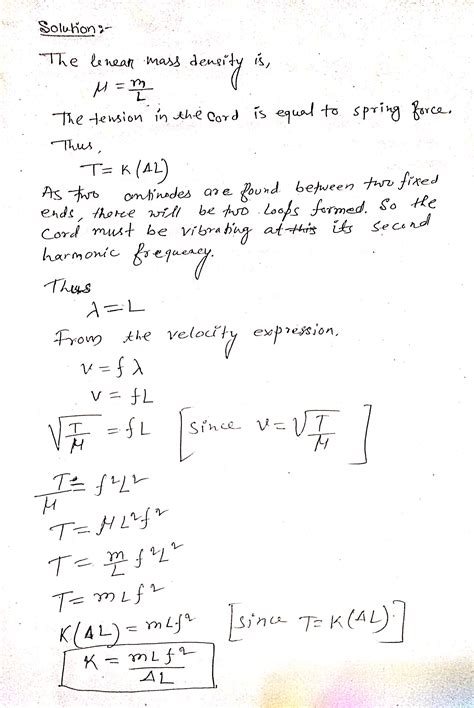 Solution :-
The linear mass density is,
μ = m/L
The tension in the cord is equal to spring force.
Thus,
T = K(ΔL)
As two antinodes are found between two fixed
ends, there will be two loops formed. So the
cord must be vibrating at this its second
harmonic frequency.
Thus
λ = L
From the velocity expression,
v = fλ
v = fL
√(T/μ) = fL [since v = √(T/μ)]
T/μ = f²L²
T = μL²f²
T = m/L f²L²
T = mLf²
K(ΔL) = mLf² [since T = K(ΔL)]
K = mLf²/ΔL